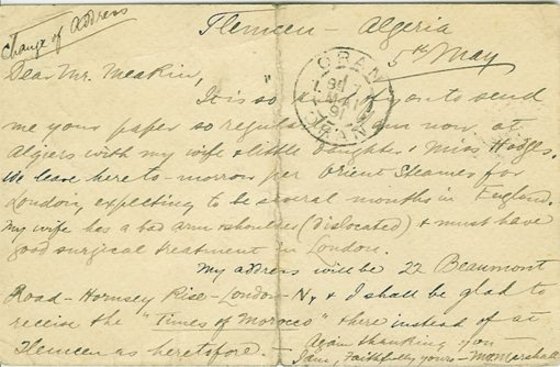 Change of Address
Tlemcen - Algeria
5th May
ORAN
MAI
91
Dear Mr. Meakin,
It is so of you to send
me your paper so regular am now at
Algiers with my wife & little daughter & Miss Hodges.
We leave here to-morrow per Orient Steamer for
London, expecting to be several months in England.
My wife has a bad arm & shoulder (dislocated) & must have
good surgical treatment in London.
My address will be 22 Beaumont
Road - Hornsey Rise - London - N, & I shall be glad to
receive the "Times of Morocco" there instead of at
Tlemcen as heretofore. -
Again thanking you
I am, faithfully yours - Marshall